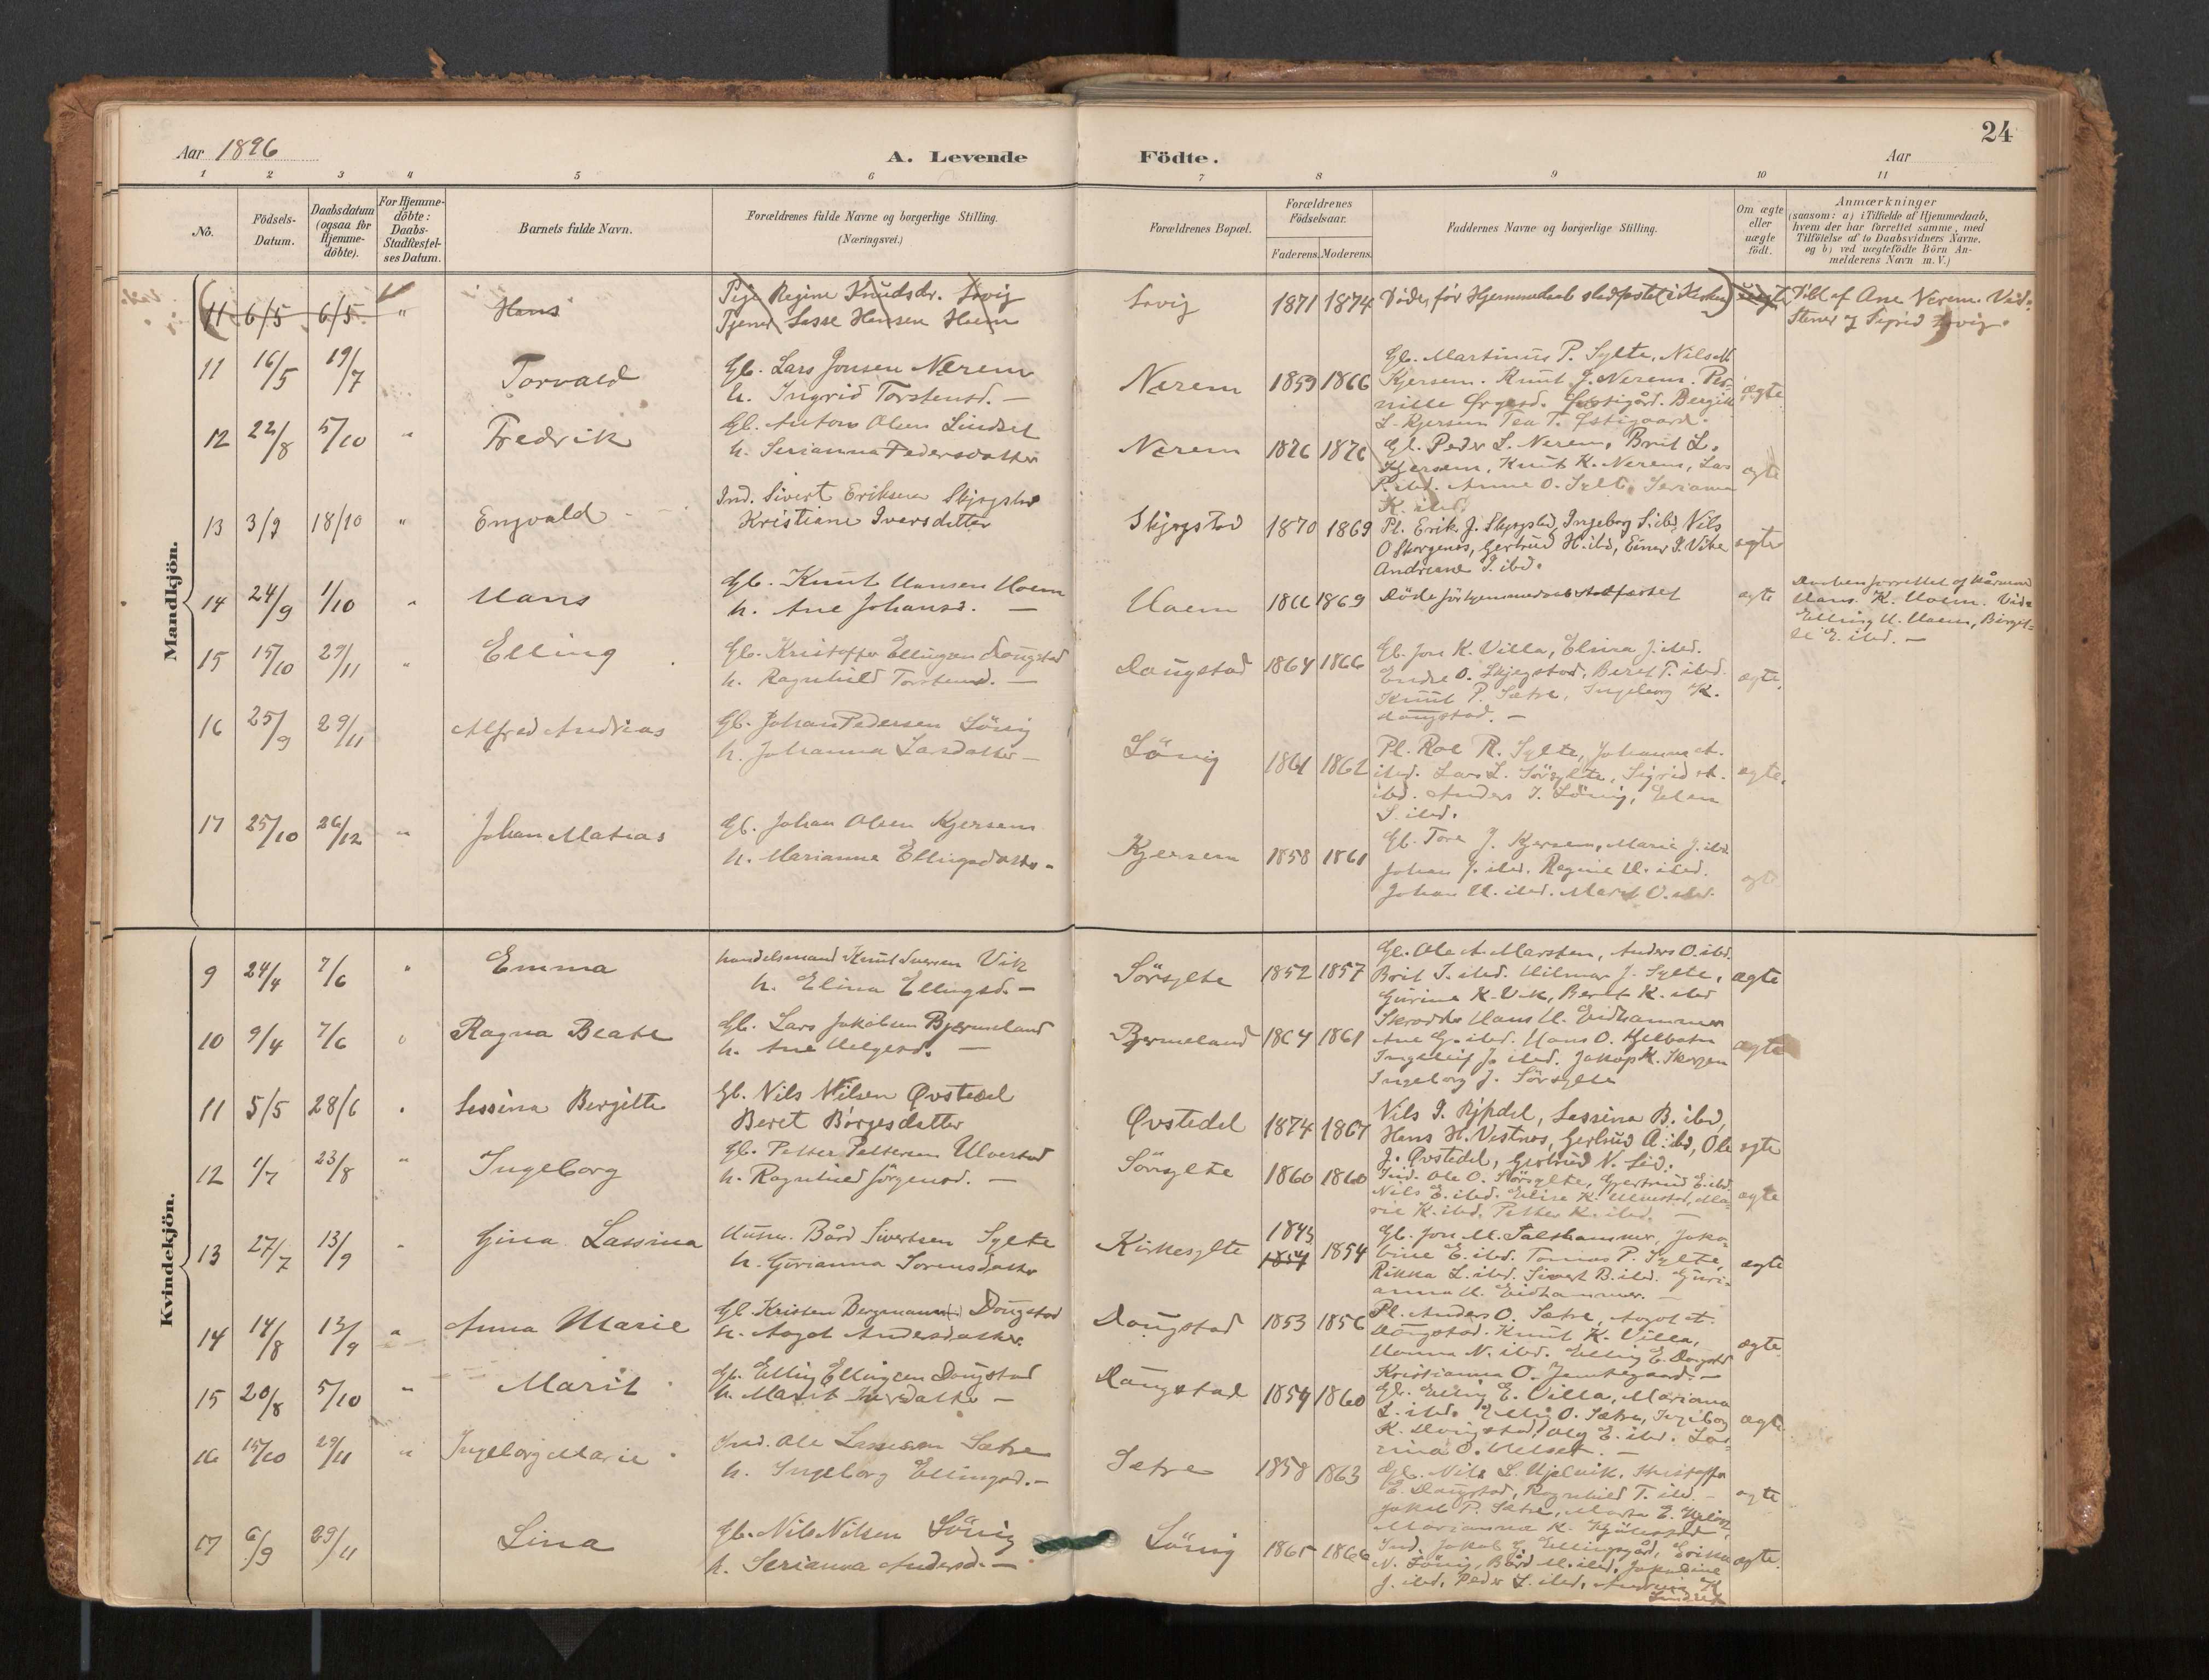 24
Aar 1896
A. Levende Födte.
Aar
1 2 3 4 5 6 7 8 9 10 11
No.
Födsels-
Datum.
Daabsdatum
(ogsaa for
Hjemme-
döbte).
For Hjemme-
döbte:
Daabs-
Stadfæstel-
ses Datum.
Barnets fulde Navn.
Forældrenes fulde Navne og borgerlige Stilling.
(Næringsvei.)
Forældrenes Bopæl.
Forældrenes
Födselsaar.
Faderens. Moderens.
Faddernes Navne og borgerlige Stilling.
Om ægte
eller
uægte
födt.
Anmærkninger
(saasom: a) i Tilfælde af Hjemmedaab,
hvem der har forrettet samme, med
Tilföielse af to Daabsvidners Navne.
og b) ved uægtefödte Börn An-
melderens Navn m. V.)
Mandkjön.
11 6/5 6/5 " Hans
Pige Regine Knudsdr.
Tjener Lasse Hansen Hoem
1871 1874
uægte
Døbt af Ane Nerem. Vid.
11 16/5 19/7 Torvald
Gb. Lars Jonsen Nerem
h. Ingrid Torstensd. —
Nerem 1859 1866
Gb. Martinus P. Sylte, Nils M
Kjersem. Knut J. Nerem. Per-
nille
L. Kjersem Tea T. Østigaard.
ægte
12 22/8 5/10 " Fredrik
Gb. Anton Olsen Lindset
h. Serianna Pedersdatter
Nerem
Gb. Peder L. Nerem, Brit L.
Kjersem, Knut K. Nerem, Lars
P. ibd. Anne O. Sylte, Serianna
K. ibd.
ægte
13 3/9 18/10 " Engvald
Ind. Sivert Eriksen Skjegstad
Kristiane Iversdatter
Skjegstad 1870 1869
Pl. Erik J. Skjegstad, Ingeborg S. ibd, Nils
O Skorgenes, Gertrud H. ibd, Einar I. Vike
Andriane I. ibd.
ægte
14 24/9 1/10 " Hans
Gb. Knut Hansen Hoem
h. Ane Johansd. —
Hoem 1869
Døde før hjemmedaab stadfæstet
ægte
Daaben forrettet af
Hans K. Hoem. Vid.
Elling H. Hoem, Berget-
15 15/10 29/11 " Elling
Gb. Kristoffer Ellingsen Dougstad
h. Ragnhild Torstensd. —
Dougstad 1864 1866
Gb. Jon K. Villa, Elina J. ibd.
Endre O. Skjegstad, Beret T. ibd.
Knut P. Sætre, Ingeborg K.
Dougstad. —
ægte.
16 25/9 29/11 Alfred Andreas
Gb. Johan Pedersen Lönig
h. Johanna Larsdatter —
Lönig 1861 1862
Pl. Roe R. Sylte, Johanna A.
ibd. Lars L. Sörsylte, Sigrid A.
ibd. Anders J. Lönig, Elen
S. ibd.
ægte.
17 25/10 26/12 " Johan Matias
Gb. Johan Olsen Kjersem
h. Marianne Ellingsdatter —
Kjersem 1858 1861
Gb. Tore J. Kjersem, Marie J. ibd.
Johan J. ibd. Regine H. ibd.
Johan H. ibd. Marit O. ibd.
ægte
Kvindekjön.
9 24/4 7/6 " Emma
Handelsmand Knut Iversen Vik
h. Elina Ellingsd. —
Sörsylte 1852 1857
Gb. Ole A. Marsten, Anders O. ibd.
Brit I. ibd. Hilmar J. Sylte,
Gurine K. Vik, Beret K. ibd
ægte
10 9/4 7/6 Ragna Beate
Gb. Lars Jakobsen Bjermeland
h. Ane Helgesd. —
Bjermeland 1864 1861
Skrædder Hans H. Eidhammer
Ane G. ibd. Hans O. Helbotn
J. ibd. Jakob K. Skorgen
Ingeborg J. Sörsylte
ægte
11 5/5 28/6 Lessina Bergitte
Gb. Nils Nilsen Øvstedal
Beret Börgesdatter
Øvstedal 1874 1867
Nils I. Rypdal, Lessina B. ibd,
Hans H. Vestnes, Gertrud A. ibd, Ole
J. Øvstedal, Gertrud N. Lid.
ægte
12 1/7 23/8 " Ingeborg
Gb. Petter Pettersen Ulvestad
h. Ragnhild Jörgensd. —
Sörsylte 1860 1860
Ind. Ole O. Sörsylte, Gjertrud E. ibd.
Nils E. ibd. Elise K. Ulvestad, Ma-
rie K. ibd. Petter K. ibd. —
ægte
13 27/7 13/9 Gina Lassina
Husm. Bård Sivertsen Sylte
h. Gurianna Sorensdatter
Kirkesylte 1843 1854
Gb. Jon M. Salthammer, Jako-
bine E. ibd. Tomas P. Sylte,
Rikka L. ibd. Sivert B. ibd. Guri-
anna H. Eidhammer. —
ægte
14 14/8 13/9 " Anna Marie
Gb. Kristen Bergmann Dougstad
h. Aagot Andersdatter.
Dougstad 1853 1856
Pl. Anders O. Sætre, Aagot A.
Dougstad. Knut K. Villa,
Hanna N. ibd. Elling E. Dougstad
Kristianna O.
ægte.
15 20/8 5/10 " Marit
Gb. Elling Ellingsen Dougstad
h. Marit Iversdatter —
Dougstad 1854 1860
Gb. Elling E. Villa, Mariana
L. ibd. Elling O. Sætre, Ingeborg
K. Dougstad, Oly E. ibd.
O. Helset. —
ægte.
16 15/10 29/11 " Ingeborg Marie
Ind. Ole Lassesen Sætre
h. Ingeborg Ellingsd. —
Sætre 1858 1863
Gb. Nils L. Hjelvik, Kristoffer
E. Dougstad, Ragnhild T. ibd —
Jakob P. Sætre, Marta E. Hjelvik,
Marianna K.
ægte
17 6/9 29/11 Lina
Gb. Nils Nilsen Lönig
h. Serianna Andersd. —
Lönig 1865 1866
Ind. Jakob J. Ellingsgård, Erika
N. Lönig, Bård M. ibd, Jakobine
J. ibd, Peder L. ibd, Andrea K
Lindset
ægte.